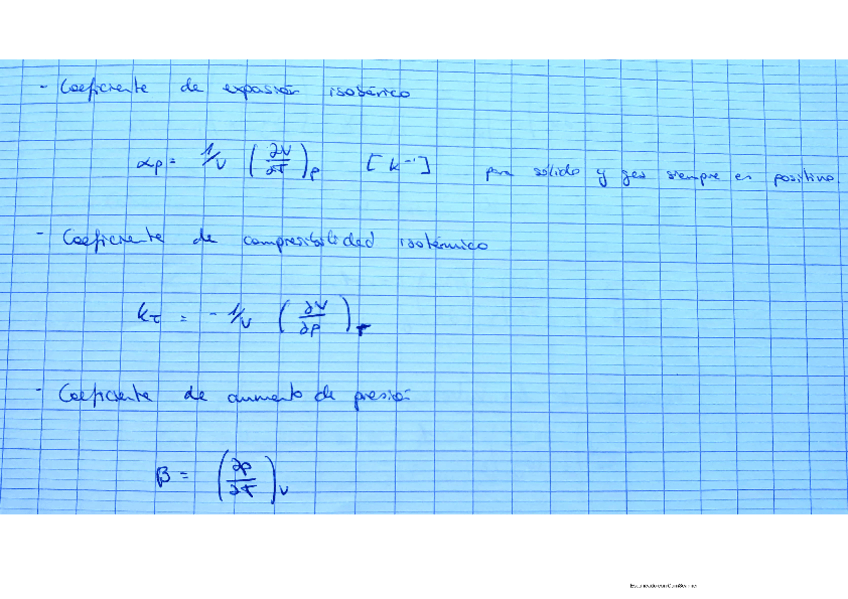 - Coeficiente de expasión isobárico
αp = 1/V (∂V/∂T)p [K⁻¹] para sólido y gas siempre es positivo
- Coeficiente de compresibilidad isotérmico
kT = - 1/V (∂V/∂p)T
- Coeficiente de aumento de presión
β = (∂p/∂T)V
Escaneado con CamScanner